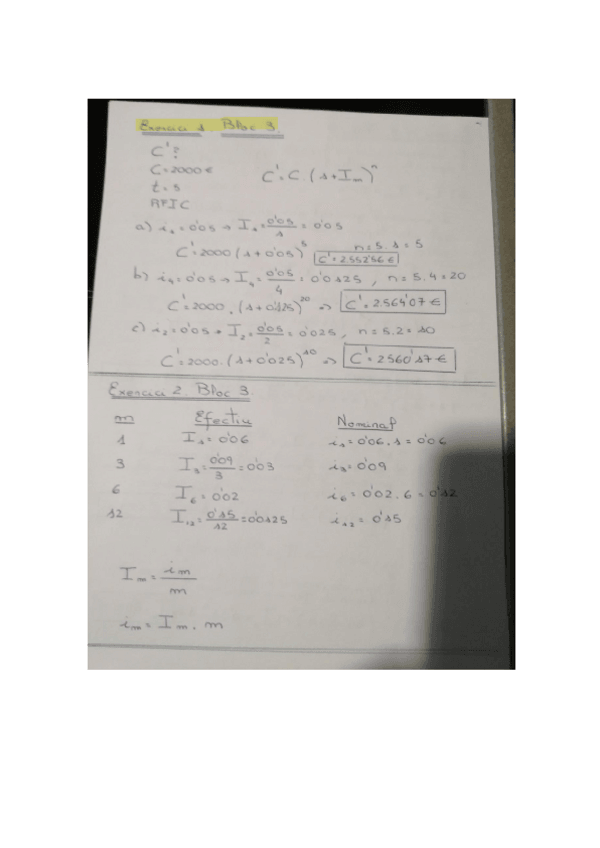 Exercici 1. Bloc 3
C'?
C=2000€
t=5
RFIC
C'=C.(1+Im)^n
a) i₁=0'05 → I₁=0'05/1=0'05
n=5.1=5
C'=2000(1+0'05)^5 C'=2.552'56€
b) i₄=0'05 → I₄=0'05/4=0'0125, n=5.4=20
C'=2000.(1+0'0125)^20 => C'=2.564'07€
c) i₂=0'05 → I₂=0'05/2=0'025, n=5.2=10
C'=2000.(1+0'025)^10 => C'=2560'17€
Exercici 2. Bloc 3
m Efectiu Nominal
1 I₁=0'06 i₁=0'06.1=0'06
3 I₃=0'09/3=0'03 i₃=0'09
6 I₆=0'02 i₆=0'02.6=0'12
12 I₁₂=0'15/12=0'0125 i₁₂=0'15
Im=im/m
im=Im.m